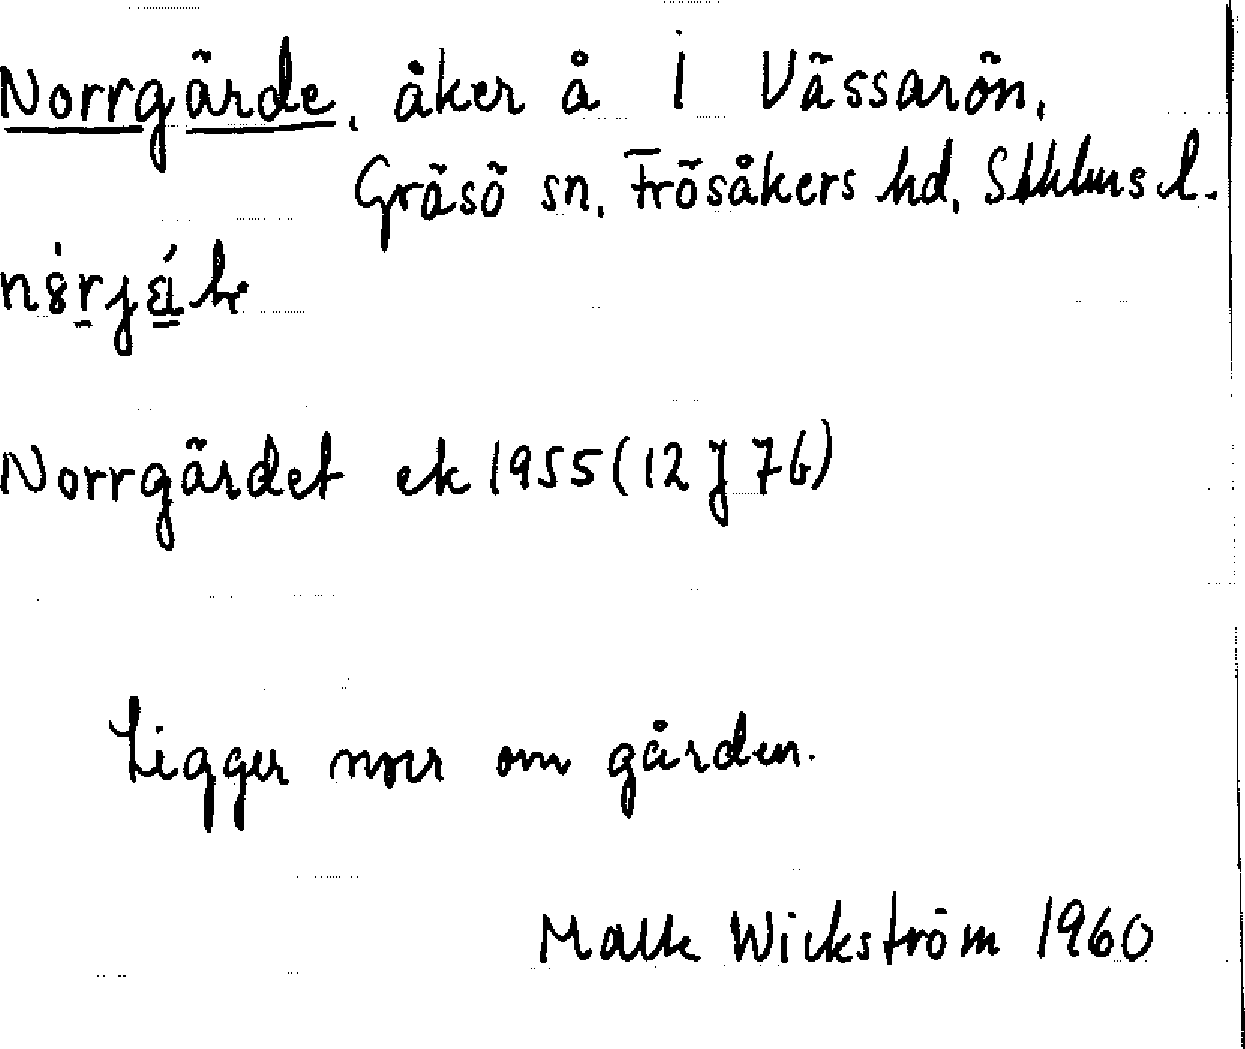 Norrgärde, åker å 1 Vässarön,
Gräsö sn, Frösåkers hd, Sthlms l.
Norrgärdet ek 1955 (12 J 7b)
Ligger norr om gården.
Wickström 1960